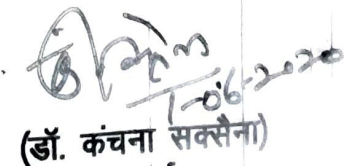 1-06-2020
(डॉ. कंचना सक्सैना)